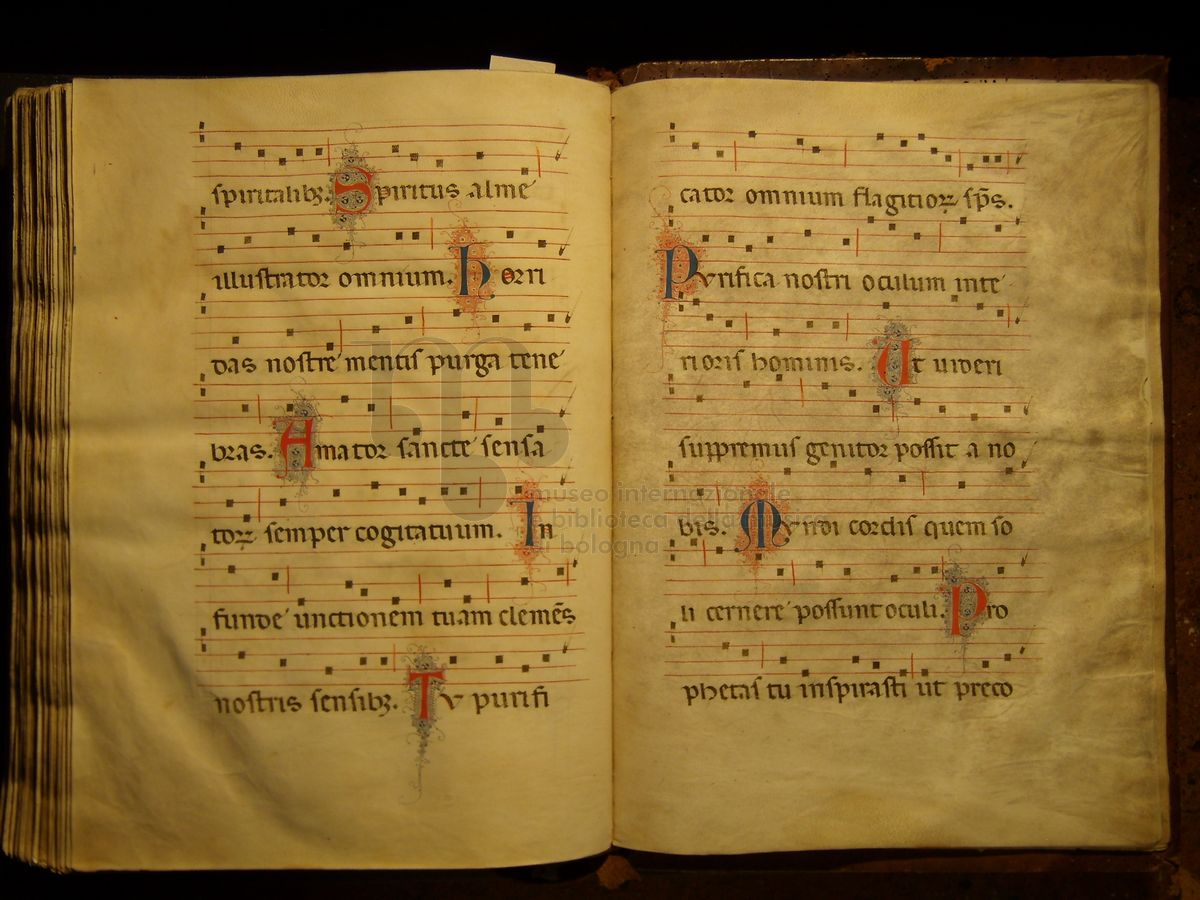 spiritalibꝫ. Spiritus alme
illustrator omnium. horri
das nostre mentis purga tene
bras. Amator sancte sensa
torꝝ semper cogitatuum. In
funde unctionem tuam clemēs
nostris sensibꝫ. Tv purifi
cator omnium flagitioꝝ sp̄s.
Pvrifica nostri oculum inte
rioris hominis. Ut uideri
suppremus genitor possit a no
bis. Mvndi cordis quem so
li cernere possunt oculi. Pro
phetas tu inspirasti ut preco
museo internazionale
e biblioteca della musica
di bologna